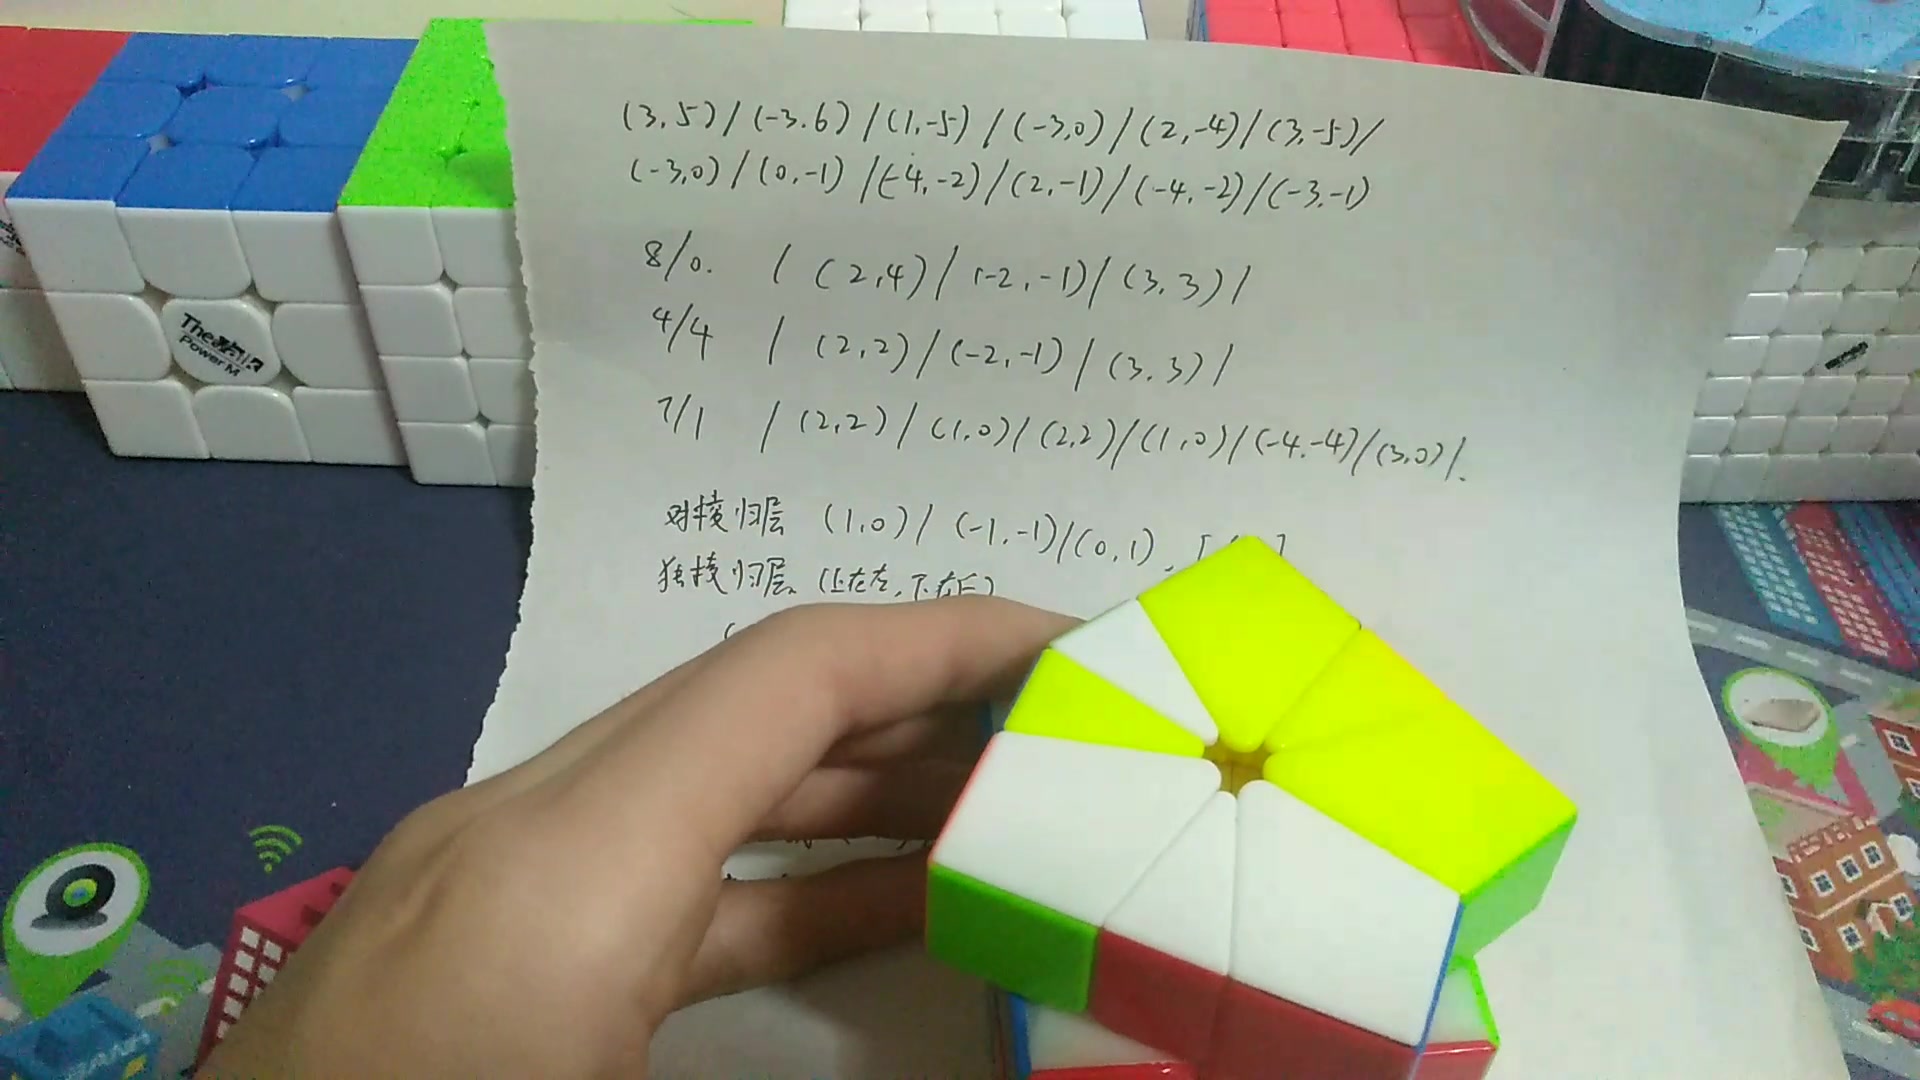 (3,5)/(-3.6)/(1,-5)/(-3,0)/(2,-4)/(3,-5)/
(-3,0)/(0,-1)/(-4,-2)/(2,-1)/(-4,-2)/(-3,-1)
8/0. /(2,4)/(-2,-1)/(3,3)/
4/4 /(2,2)/(-2,-1)/(3,3)/
7/1 /(2,2)/(1,0)/(2,2)/(1,0)/(-4,-4)/(3,0)/.
对棱归层 (1,0)/(-1,-1)/(0,1),
独棱归层 (上在左,下在后)
The
Power M